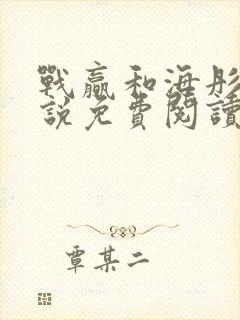 戰贏和海彤
說免費閱讀
覃某二